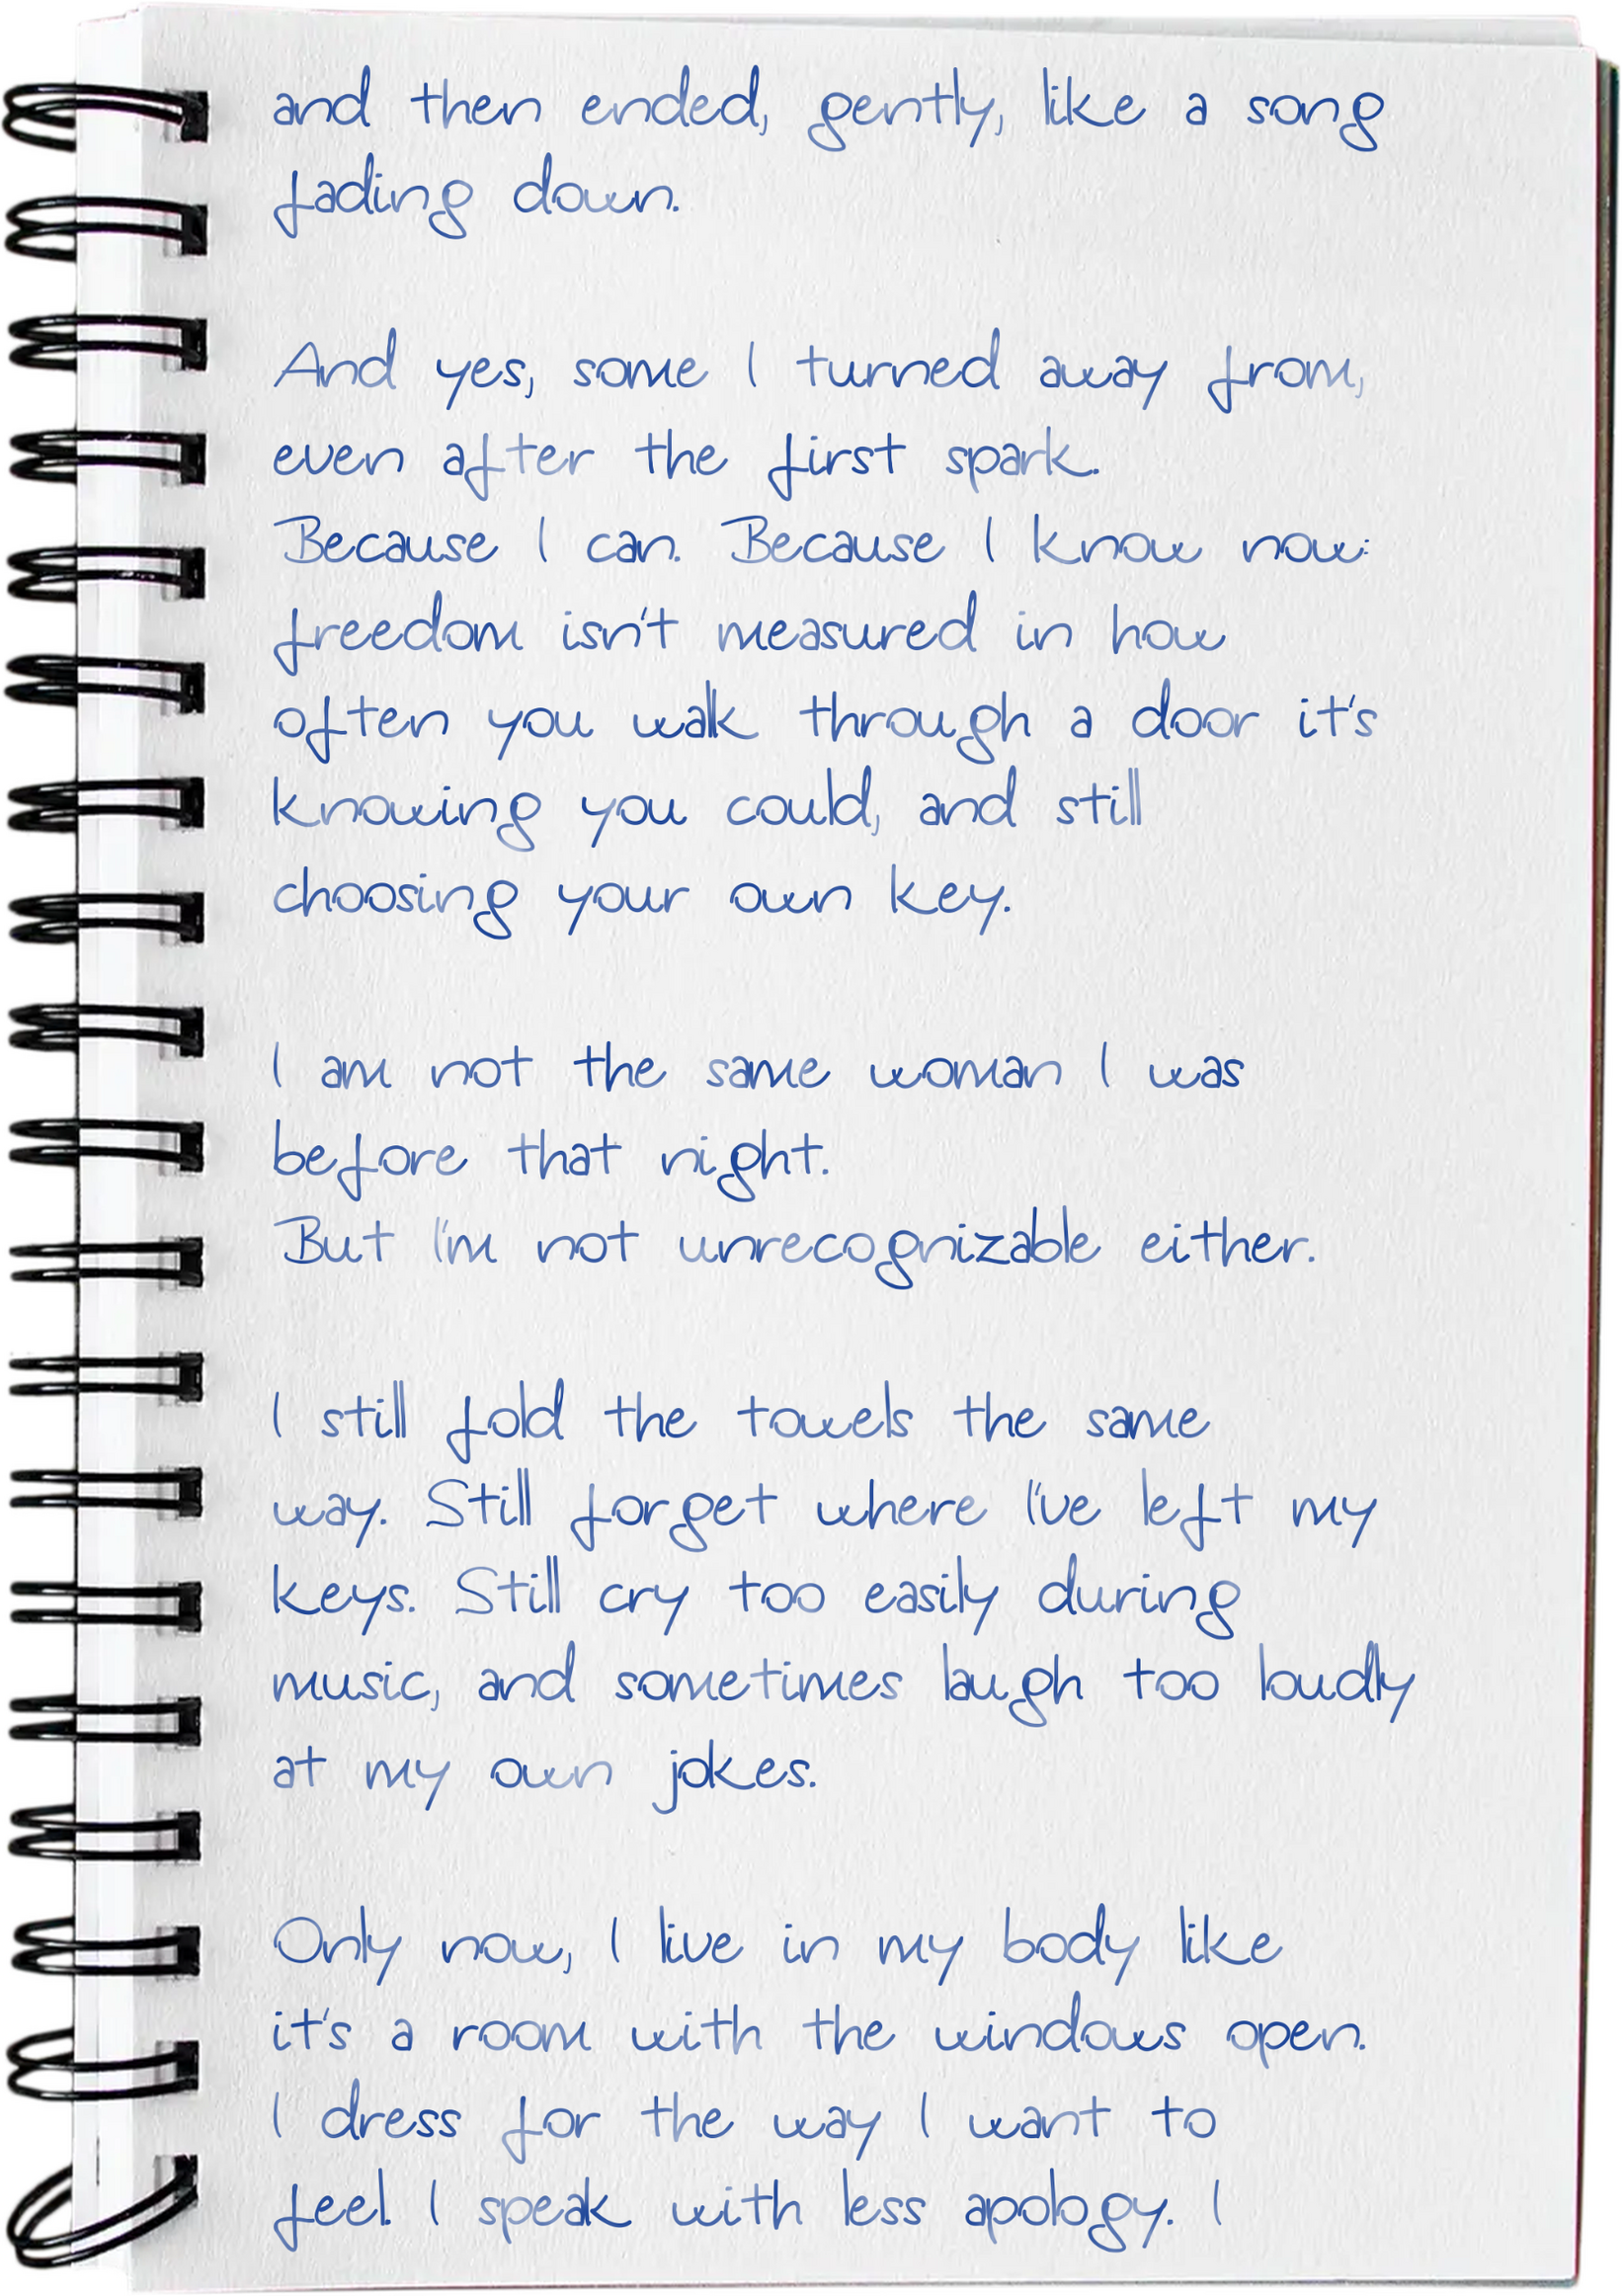 and then ended, gently, like a song
fading down.
And yes, some I turned away from,
even after the first spark.
Because I can. Because I know now:
freedom isn't measured in how
often you walk through a door it's
knowing you could, and still
choosing your own key.
I am not the same woman I was
before that night.
But I'm not unrecognizable either.
I still fold the towels the same
way. Still forget where I've left my
keys. Still cry too easily during
music, and sometimes laugh too loudly
at my own jokes.
Only now, I live in my body like
it's a room with the windows open.
I dress for the way I want to
feel. I speak with less apology. I